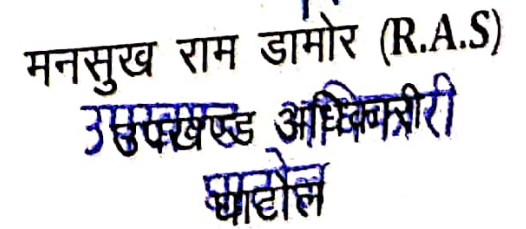 मनसुख राम डामोर (R.A.S)
उपखण्ड अधिकारी
घाटोल